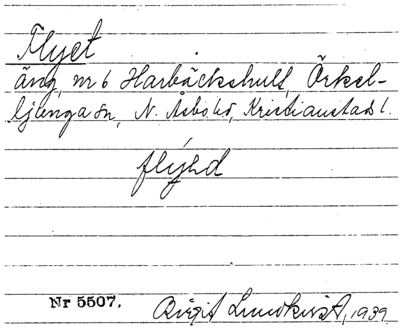 Flyet
äng, nr 6 Harbäckshult, Örkel-
ljunga sn, N. Åsbo hd, Kristianstads l.
Nr 5507. Birgit Lundkvist, 1939